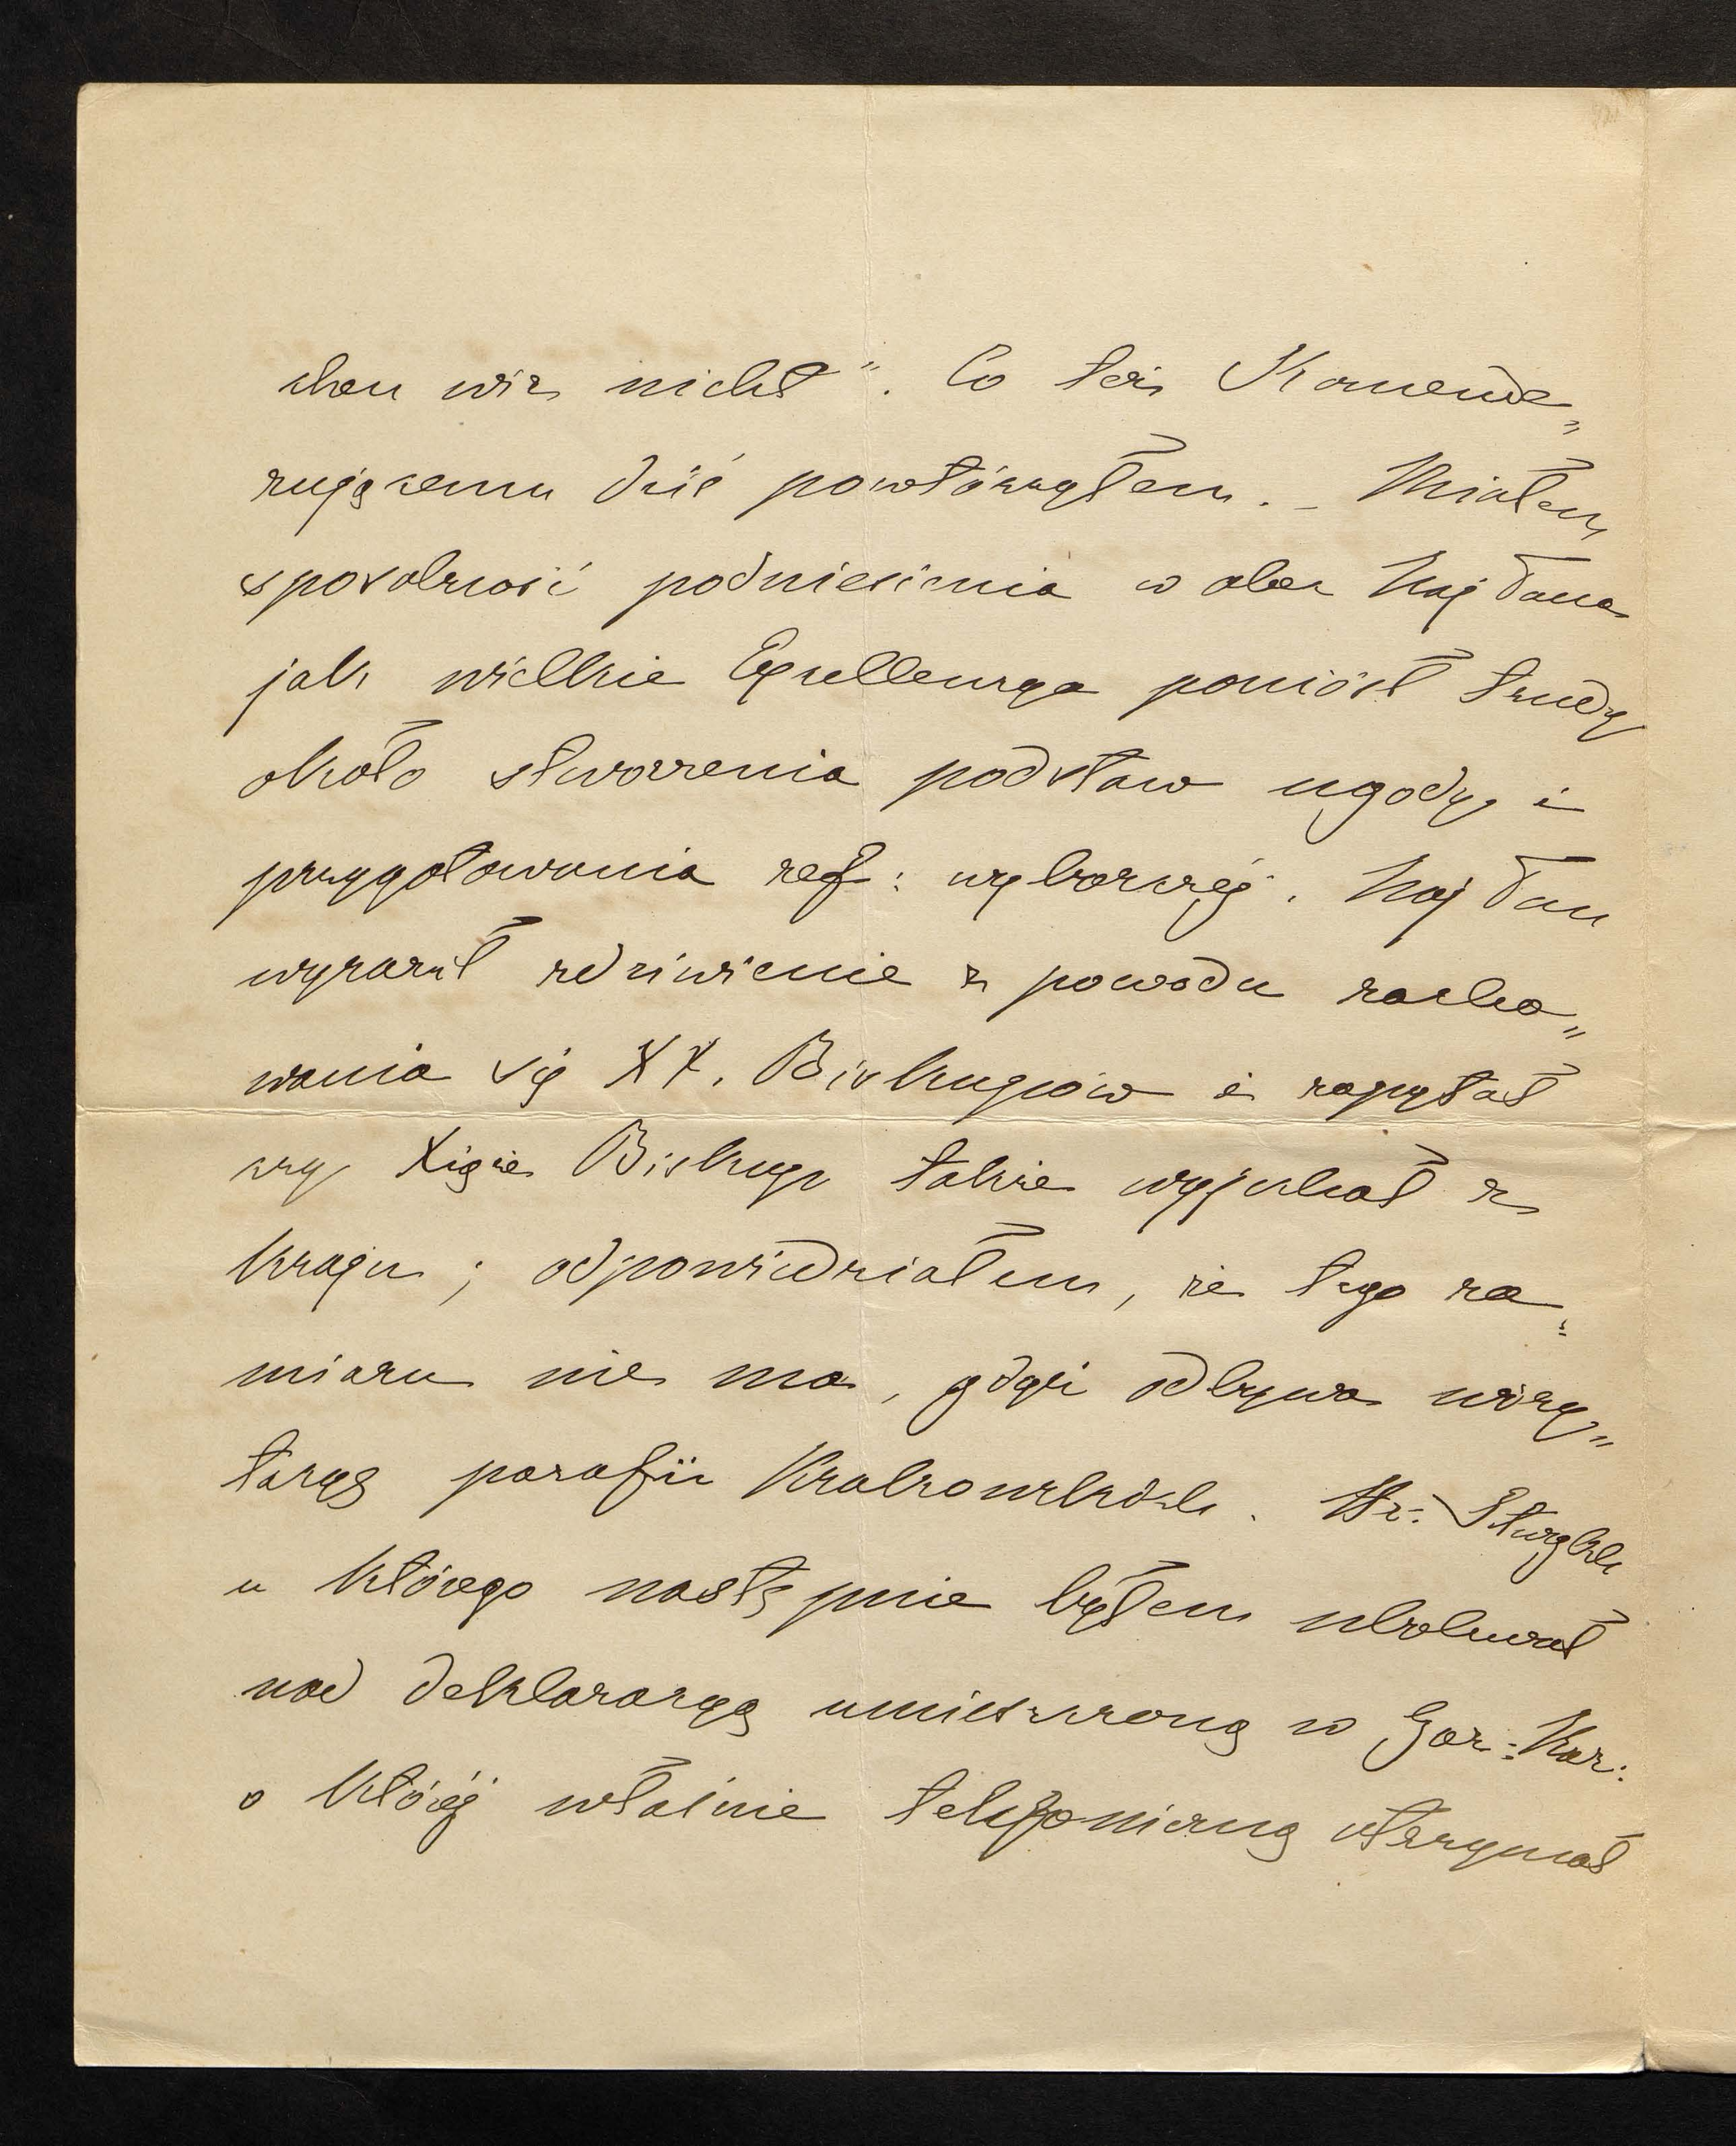 chen wir nicht". Co też Komende„
rującemu dziś powtórzyłem. – Miałem
sposobność podniesienia wobec Naj Pana
jak wielkie Excellencya poniósł trudy
około stworzenia podstaw ugody i
przygotowania ref: wyborczéj. Naj Pan
wyraził zdziwienie z powodu zacho„
wania się XX. Biskupów i zapytał
czy Xiąże Biskup także wyjechał z
kraju; odpowiedziałem, że tego za„
miaru nie ma, gdyż odbywa wizy„
tacyę parafii Krakowskich. Hr: Stürgkh
u którego następnie byłem ubolewał
nad deklaracyą umieszczoną w Gaz: Nar:
o któréj właśnie telefoniczną otrzymał